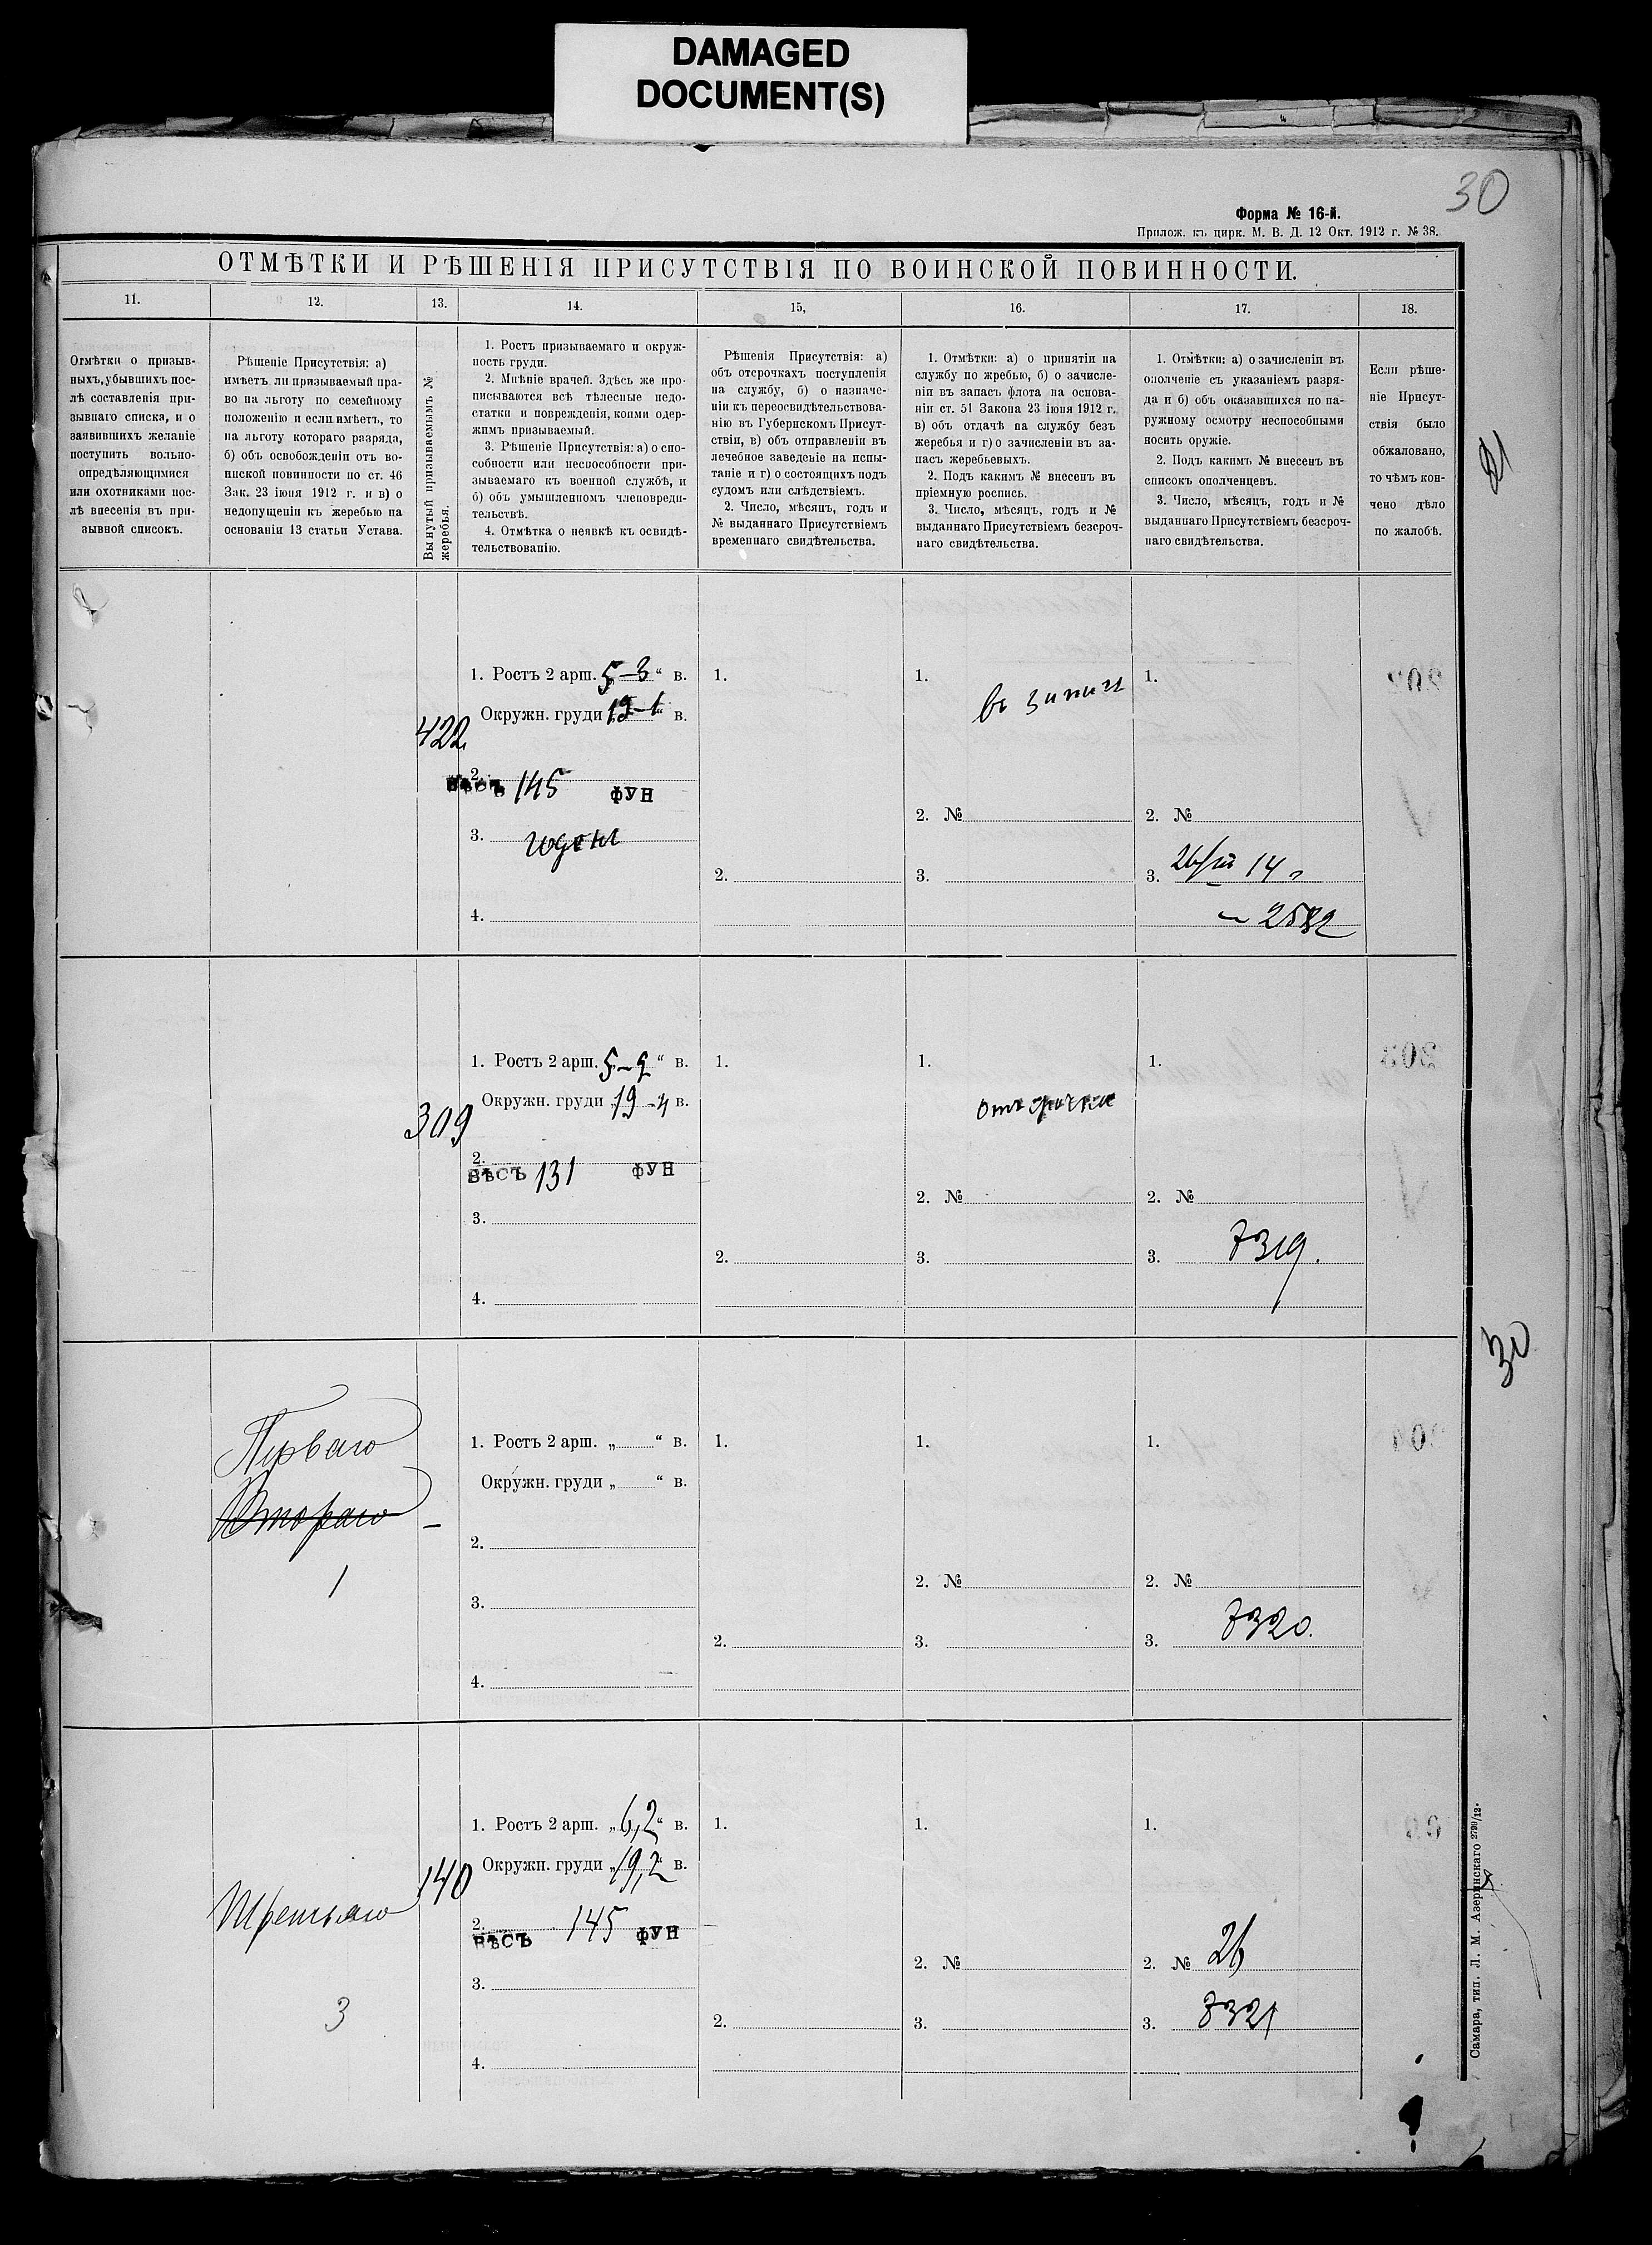 DAMAGED
DOCUMENT(S)
30
Форма № 16-й.
Прилож. къ цирк. М. В. Д. 12 Окт. 1912 г. № 38.
ОТМѢТКИ И РѢШЕНІЯ ПРИСУТСТВІЯ ПО ВОИНСКОЙ ПОВИННОСТИ.
11.
12.
13.
14.
15,
16.
17.
18.
Отмѣтки о призыв-
ныхъ, убывшихъ пос-
лѣ составленія при-
зывнаго списка, и о
заявившихъ желаніе
поступить вольно-
опредѣляющимися
или охотниками пос-
лѣ внесенія въ при-
зывной списокъ.
Рѣшеніе Присутствія: а)
имѣетъ ли призываемый пра-
во на льготу по семейному
положенію и если имѣетъ, то
на льготу котораго разряда,
б) объ освобожденіи отъ во-
инской повинности по ст. 46
Зак. 23 іюня 1912 г. и в) о
недопущеніи къ жеребью на
основаніи 13 статьи Устава.
Вынутый призываемымъ №
жеребья.
1. Ростъ призываемаго и окруж-
ность груди.
2. Мнѣніе врачей. Здѣсь же про-
писываются всѣ тѣлесные недо-
статки и поврежденія, коими одер-
жимъ призываемый.
3. Рѣшеніе Присутствія: а) о спо-
собности или неспособности при-
зываемаго къ военной службѣ, и
б) объ умышленномъ членовреди-
тельствѣ.
4. Отмѣтка о неявкѣ къ освидѣ-
тельствованію.
Рѣшенія Присутствія: а)
объ отсрочкахъ поступленія
на службу, б) о назначе-
ніи къ переосвидѣтельствова-
нію въ Губернскомъ Присут-
ствіи, в) объ отправленіи въ
лечебное заведеніе на испы-
таніе и г) о состоящихъ подъ
судомъ или слѣдствіемъ.
2. Число, мѣсяцъ, годъ и
№ выданнаго Присутствіемъ
временнаго свидѣтельства.
1. Отмѣтки: а) о принятіи на
службу по жребью, б) о зачисле-
ніи въ запасъ флота на основа-
ніи ст. 51 Закона 23 іюня 1912 г.
в) объ отдачѣ на службу безъ
жеребья и г) о зачисленіи въ за-
пасъ жеребьевыхъ.
2. Подъ какимъ № внесенъ въ
пріемную роспись.
3. Число, мѣсяцъ, годъ и №
выданнаго Присутствіемъ безсроч-
наго свидѣтельства.
1. Отмѣтки: а) о зачисленіи въ
ополченіе съ указаніемъ разря-
да и б) объ оказавшихся по на-
ружному осмотру неспособными
носить оружіе.
2. Подъ какимъ № внесенъ въ
списокъ ополченцевъ.
3. Число, мѣсяцъ, годъ и №
выданнаго Присутствіемъ безсроч-
наго свидѣтельства.
Если рѣше-
ніе Присут-
ствія было
обжаловано,
то чѣмъ кон-
чено дѣло
по жалобѣ.
422
1. Ростъ 2 арш. 5-3 " в.
Окружн. груди 19-1 в.
2.
ВѢСЪ 145 ФУН
3. годенъ
4.
1.
2.
1.
2. №
3.
1.
2. №
3. 14
2582
309
1. Ростъ 2 арш. 5-2 " в.
Окружн. груди 19-4 в.
2.
ВѢСЪ 131 ФУН
3.
4.
1.
2.
1.
2. №
3.
1.
2. №
3. 7319.
30
Перваго
Втораго
1
1. Ростъ 2 арш. „ " в.
Окружн. груди „ " в.
2.
3.
4.
1.
2.
1.
2. №
3.
1.
2. №
3. 7320.
Третьяго
3
140
1. Ростъ 2 арш. „6,2" в.
Окружн. груди „19,2" в.
2.
ВѢСЪ 145 ФУН
3.
4.
1.
2.
1.
2. №
3.
1.
2. № 26
3. 7321
Самара, тип. Л. М. Азеринскаго 2790/12.